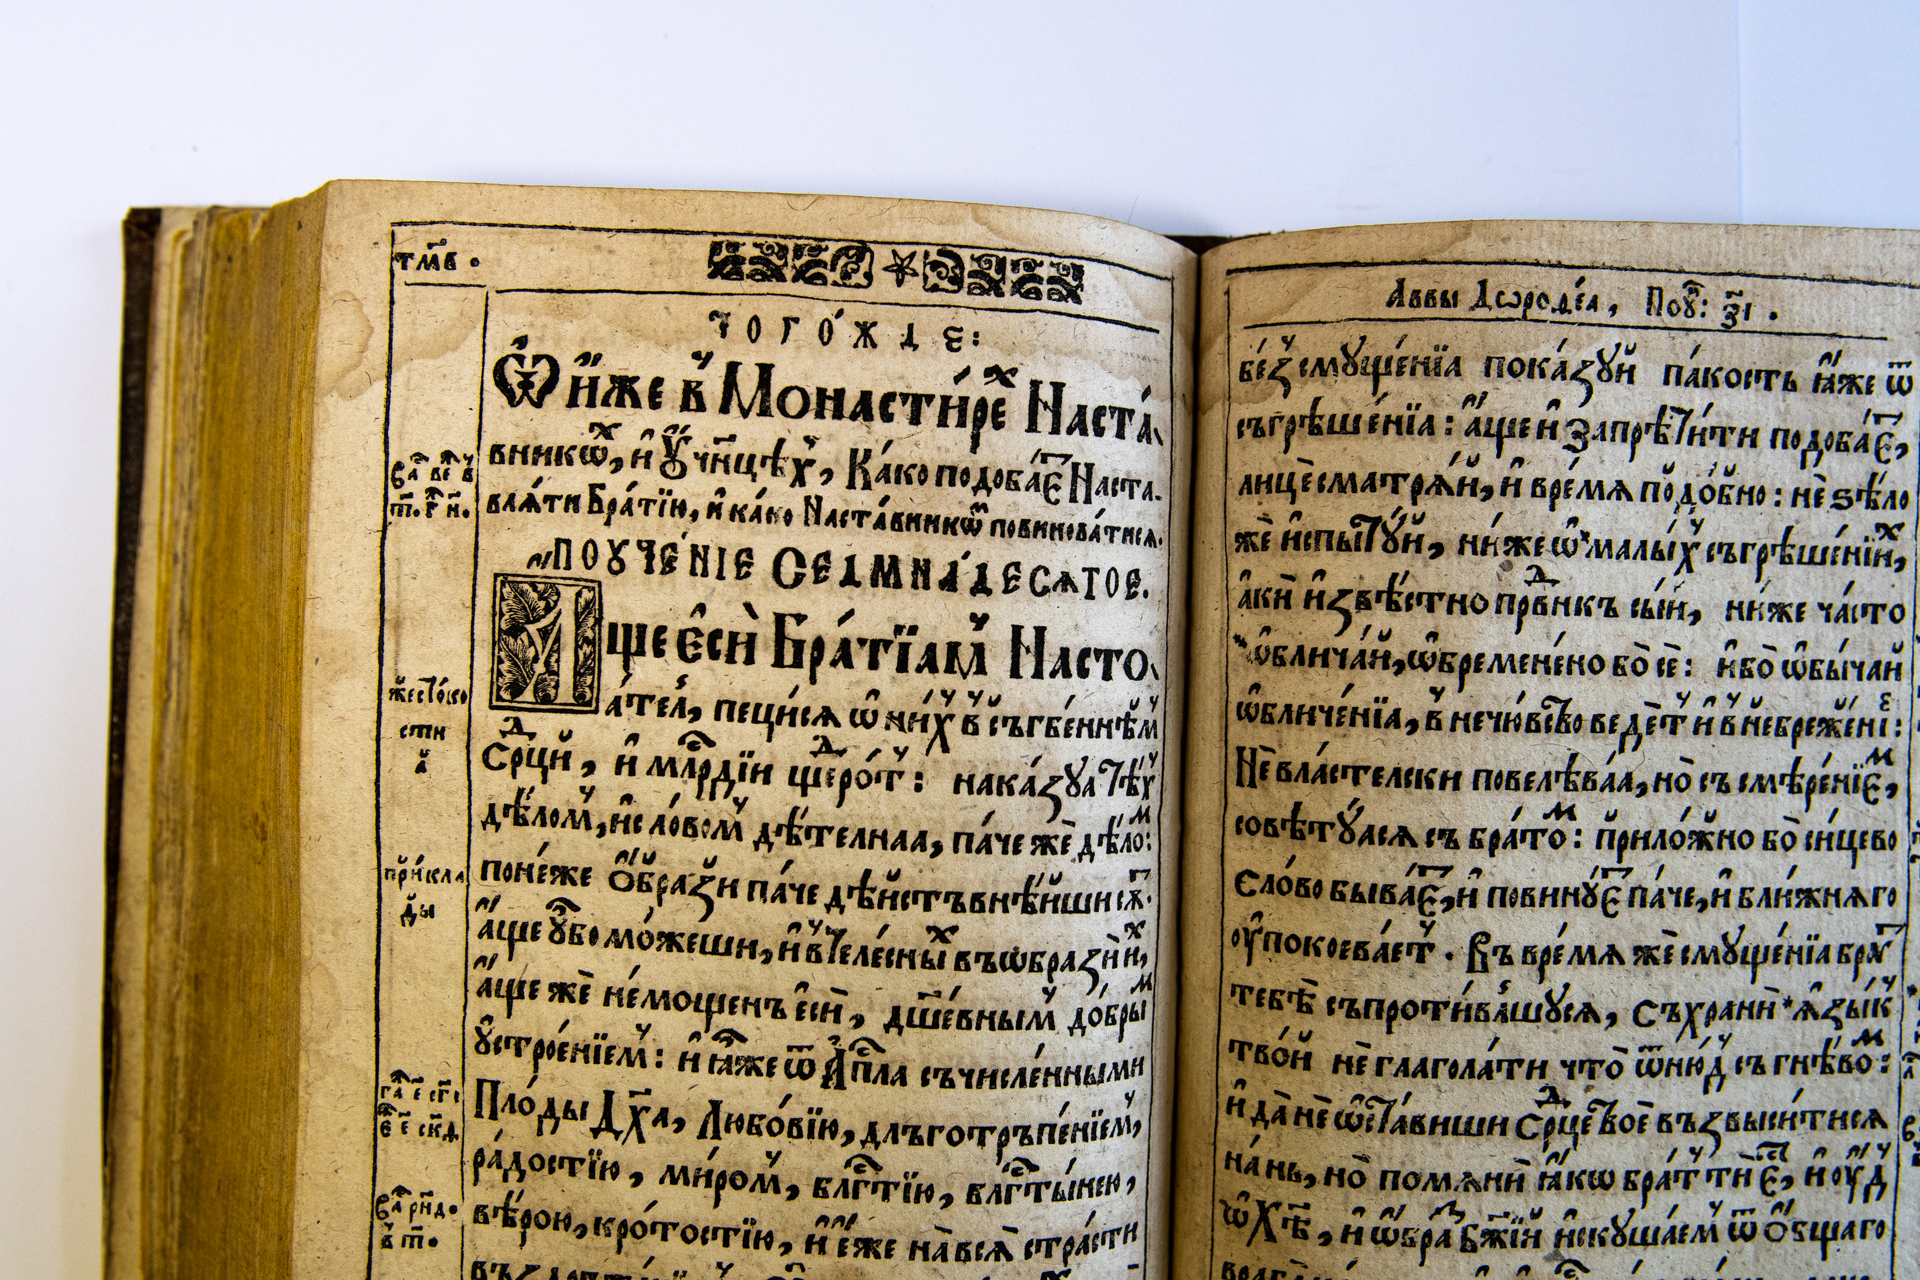 тм҃в .
ТОГО́ЖДЕ:
Ѿ и҆́же в̾ Монасти́рех Наста́‑
вникѡх, и҆ Ꙋ҆чн҃цѣх̾, Ка́ко подоба́ет Наста‑
влѧ́ти Бра́тїю, и҆ ка́ко Наста́вникѡм повинова́тисѧ.
ПОУЧЕ́НІЕ СЕДМНА́ДЕСѦТОЕ.
Аще є҆сѝ Бра́тїам̾ Насто‑
ѧ́тел, пеци́сѧ ѡ҆ ни́х̾ в̾ съгбе́ннѣм̾
Срдци, и҆ млⷭ҇рдїи щедро́т̾: нака́зꙋа тѣ́х̾
дѣ́лом̾, и҆ сло́вом̾ дѣ́телнаа, па́че же дѣ́лом:
поне́же Ѻ҆́брази па́че дѣ́йстъвнѣ́йши сѫт.
а҆́ще ᲂу҆́бо мо́жеши, и҆ в̾ теле́сных въ ѡбразѝ и́х,
а҆́ще же не́мощенъ є҆сѝ, дш҃е́вным̾ до́брым
ᲂу҆строе́нїем̾: и҆ ꙗ҆́же ѿ А҆пⷭ҇ла съчисле́нными
Плоды̀ Дх҃а, Любо́вїю, длъготръпе́нїем̾,
ра́достїю, ми́ром̾, блгⷭ҇тїю, блгⷭ҇ты́нею,
вѣ́рою, кро́тостїю, и҆ є҆́же на всѧ̀ стра́сти
жесто́ко
сти
при́кла
ды
Аввы Дѡроѳе́а, Поꙋч: з҃і .
без̾ смꙋще́нїа пока́зꙋй па́кость ꙗ҆́же ѿ
съгрѣше́нїа: а҆́ще и҆ запрѣти́ти подоба́ет,
лицѐ сматрѧ́й, и҆ вре́мѧ подо́бно: не ѕѣло
же и҆спытꙋ́й, ни́же ѡ҆ малы́х̾ съгрѣше́нїих,
а҆́ки и҆звѣ́стно првдникъ сы́й, ни́же ча́сто
ѡ҆блича́й, ѡ҆бремене́но бо сѐ: и҆бо ѡ҆бы́чай
ѡ҆бличе́нїа, в̾ нечю́вство веде́т̾ и҆ в̾ небреже́нїе:
Не вла́стелски повелѣва́а, но съ смѣре́нїем,
совѣ́тꙋасѧ съ бра́том: прило́жно бо си́цево
сло́во быва́ет, и҆ повинꙋ́ет па́че, и҆ бли́жнѧго
ᲂу҆покоева́ет̾. Въ вре́мѧ же смꙋще́нїа брат
тебѣ̀ съпроти́вльшꙋсѧ, Съхранѝ * ѧ҆зы́к̾
тво́й не глагола́ти что̀ ѿню́д̾ съ гнѣ́вом:
и҆ да̀ не ѡ҆ста́виши Срдце твоѐ възвыси́тисѧ
на́нь, но помѧнѝ ꙗ҆́кѡ бра́т̾ ти ест, и҆ ᲂу҆́д̾
ѡ҆ Хѣ҃, и҆ ѡ҆́браз Бжїй и҆скꙋша́ем̾ ѿ О҆́бщаго